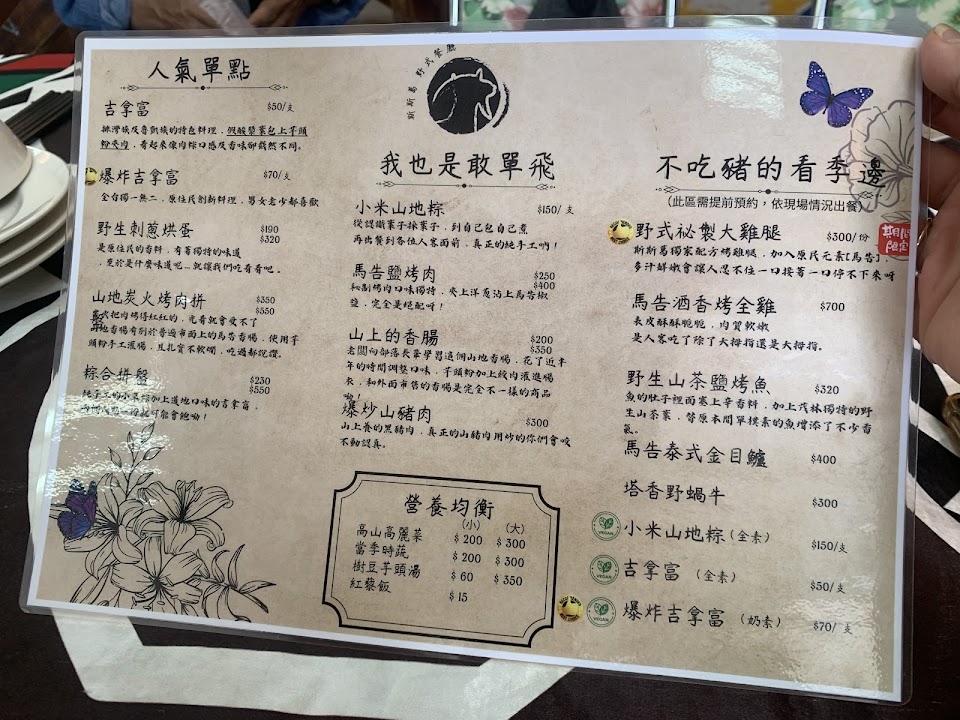 人氣單點
吉拿富 $50/支
排灣族及魯凱族的特色料理，假酸漿葉包上芋頭
粉夾肉，看起來像肉粽口感及香味卻截然不同。
爆炸吉拿富 $70/支
全台獨一無二，原住民創新料理，男女老少都喜歡
野生刺蔥烘蛋 $190
$320
是原住民的香料，有著獨特的味道
，至於是什麼味道呢—就讓我們吃看看吧。
山地炭火烤肉拼盤 $350
$550
把肉烤得紅紅的，光看就會愛不了
香腸有別於普通市面上的馬告香腸，使用芋
頭粉手工灌腸，且扎實不軟爛，吃過都說讚。
綜合拼盤 $230
$550
加上道地口味的吉拿富，
斯斯葛 野式餐廳
我也是敢單飛
小米山地粽 $150/支
從認識葉子採葉子，到自己包自己煮
再出餐到各位人客面前，真正的純手工唷！
馬告鹽烤肉 $250
$400
秘制烤肉口味獨特，夾上洋蔥沾上馬告椒
鹽，完全是絕配呀！
山上的香腸 $200
$350
老闆向部落長輩學習這個山地香腸，花了近半
年的時間調整口味，芋頭粉加上絞肉灌進腸
衣，和外面市售的香腸是完全不一樣的商品
喲！
爆炒山豬肉 $300
山上養的黑豬肉，真正的山豬肉用炒的你們會咬
不動認真。
營養均衡
(小) (大)
高山高麗菜 $200 $300
當季時蔬 $200 $300
樹豆芋頭湯 $60 $350
紅藜飯 $15
不吃豬的看季邊
（此區需提前預約，依現場情況出餐）
野式祕製大雞腿 $300/份
期間
限定
斯斯葛獨家配方烤雞腿，加入原民元素【馬告】，
多汁鮮嫩會讓人忍不住一口接著一口停不下來呀
馬告酒香烤全雞 $700
表皮酥酥脆脆，肉質軟嫩
是人客吃了除了大拇指還是大拇指。
野生山茶鹽烤魚 $320
魚的肚子裡面塞上辛香料，加上茂林獨特的野
生山茶葉，替原本簡單樸素的魚增添了不少香
氣。
馬告泰式金目鱸 $400
塔香野蝸牛 $300
VEGAN 小米山地粽（全素） $150/支
VEGAN 吉拿富（全素） $50/支
VEGAN 爆炸吉拿富（奶素） $70/支